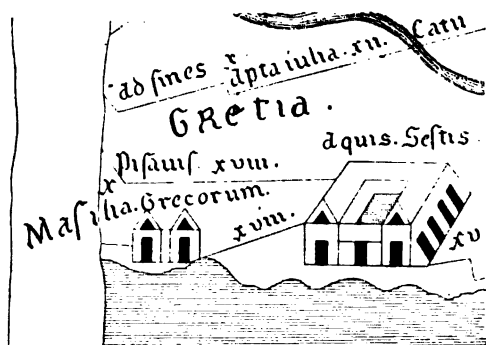 ad fines x
apta iulia. xii. Catu
GRetia.
aquis. Sestis
Pisavis xviii.
x
Masilia. Grecorum.
xviii.
xv